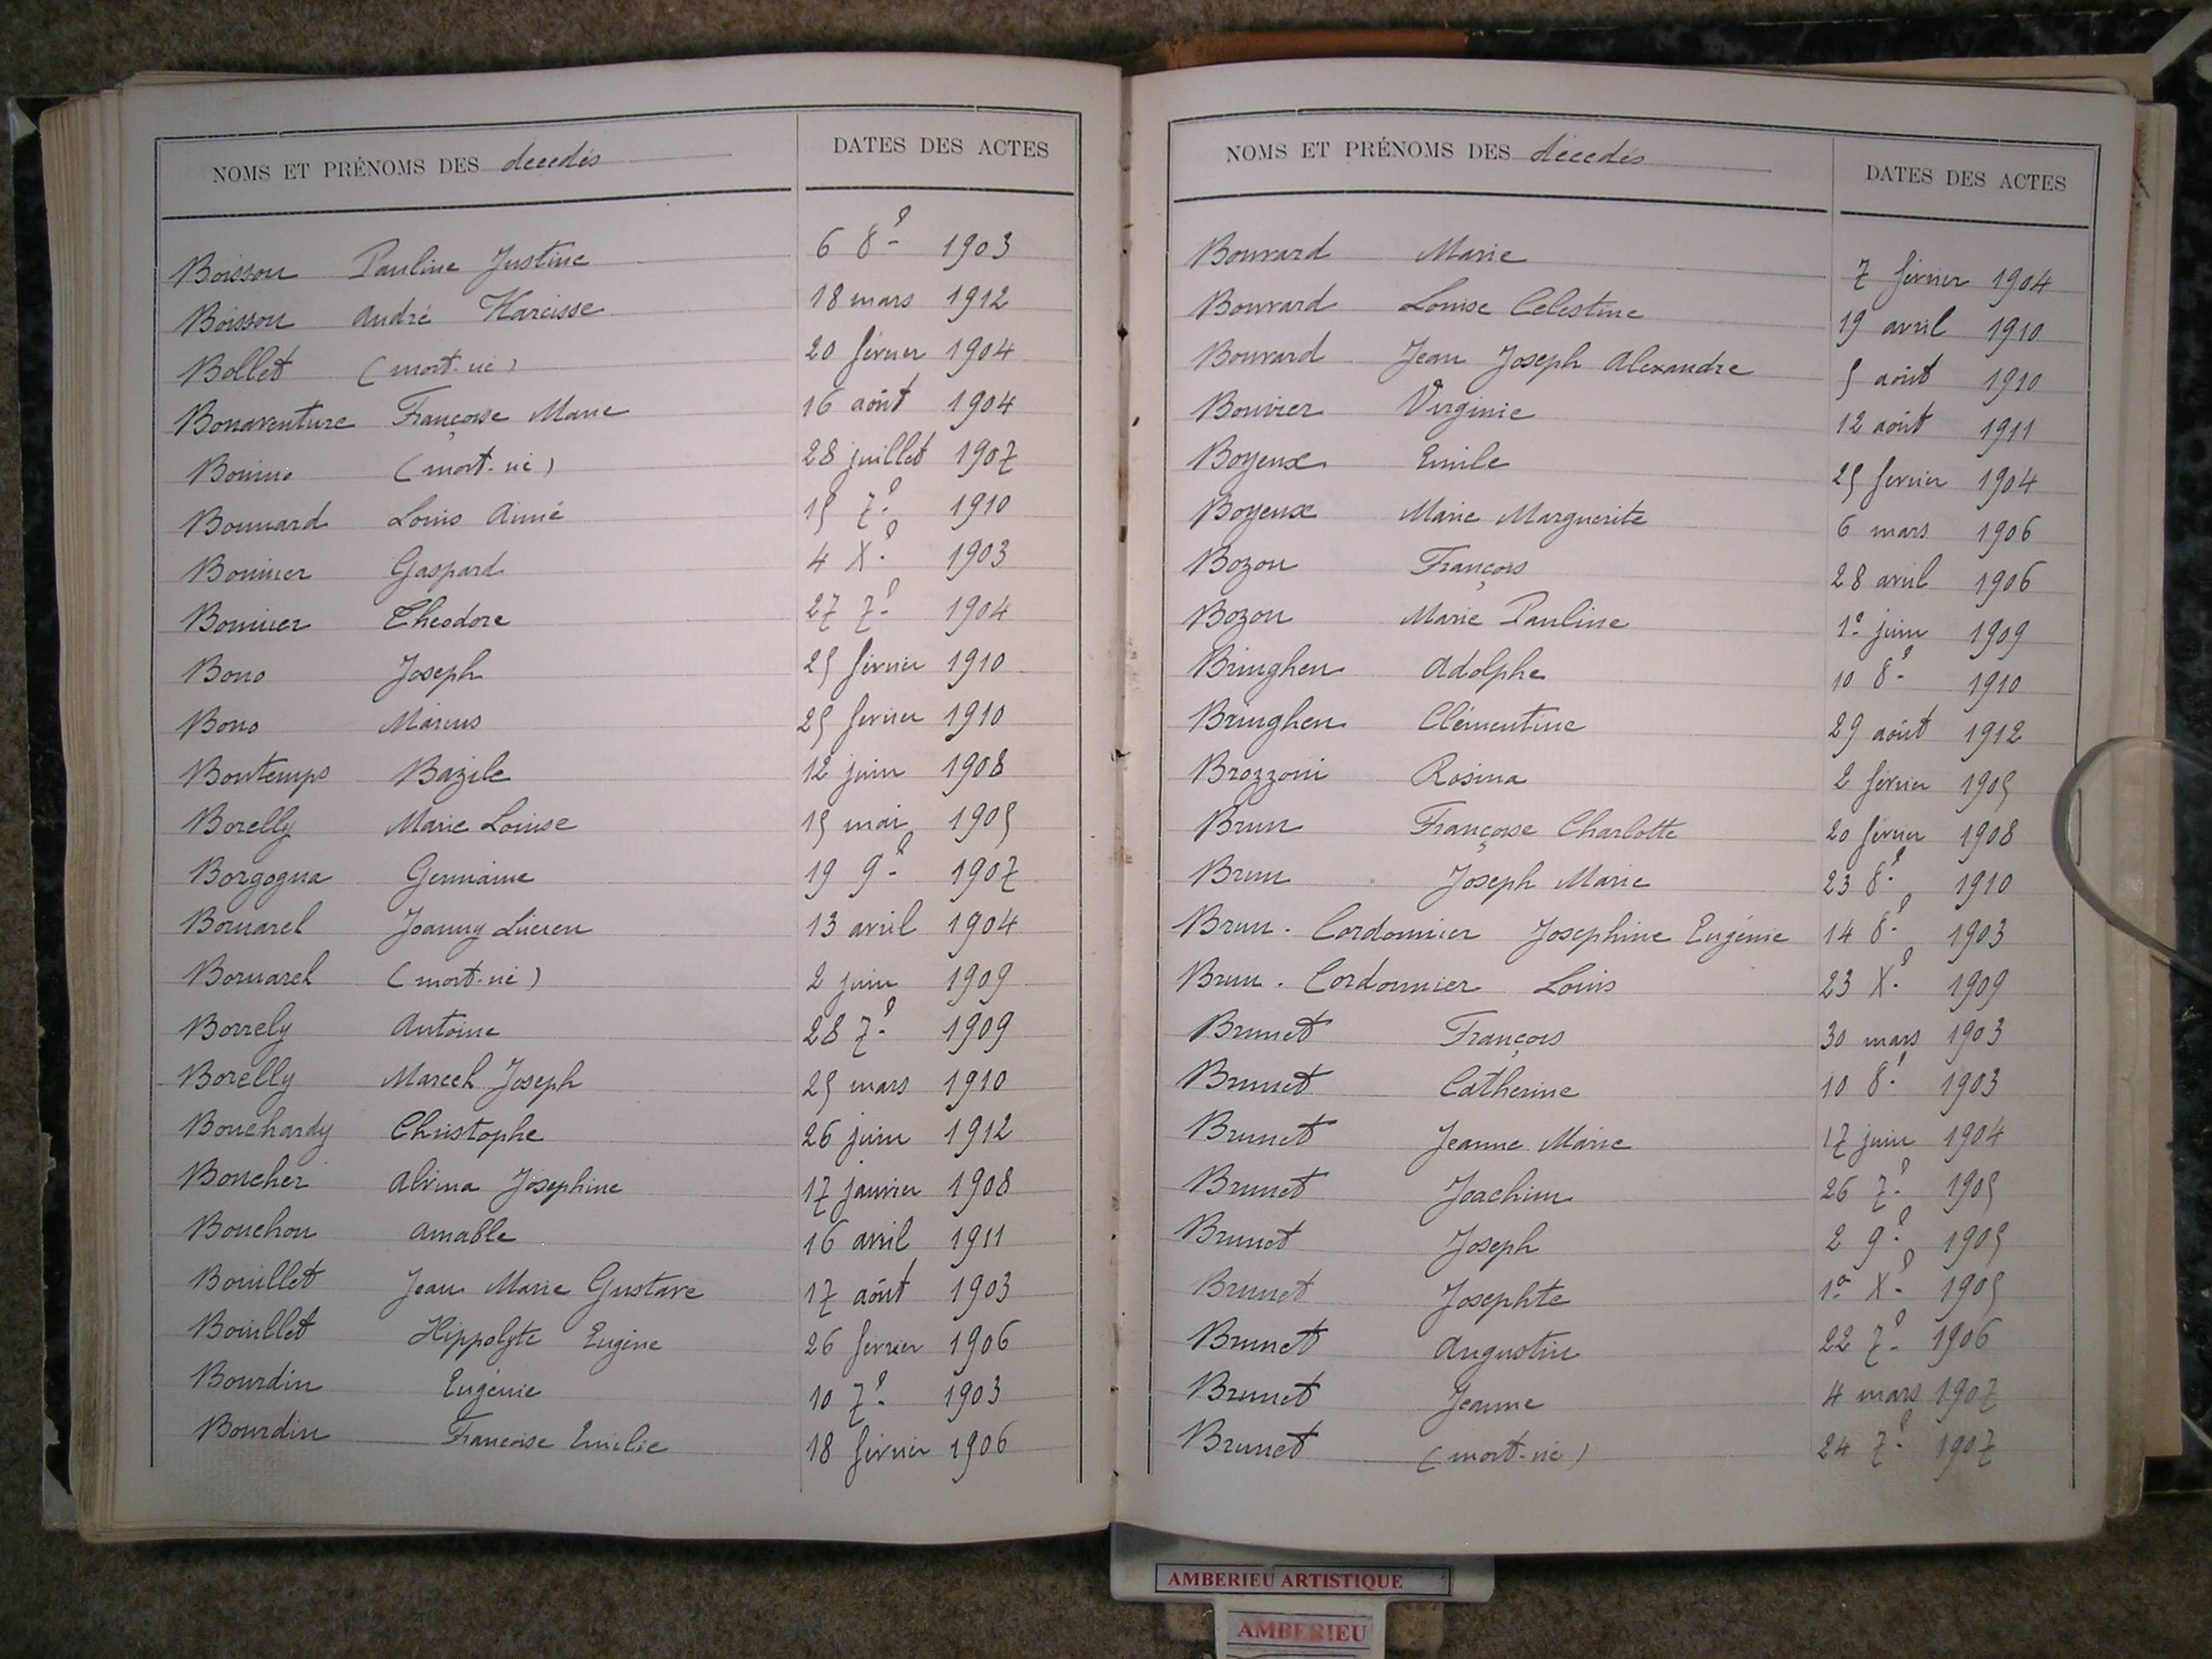 NOMS ET PRÉNOMS DES décédés DATES DES ACTES
Boisson Pauline Justine 6 8e 1903
Boisson André Narcisse 18 mars 1912
Bollet (mort-né) 20 février 1904
Bonaventure Françoise Marie 16 août 1904
(mort-né) 28 juillet 1907
Bonnard Louis Aimé 15 7e 1910
Bonnier Gaspard 4 Xe 1903
Bonnier Théodore 27 7e 1904
Bono Joseph 25 février 1910
Bono Marius 25 février 1910
Bontemps Bazile 12 juin 1908
Borelly Marie Louise 15 mai 1905
Borgogna Germaine 19 9e 1907
Bornarel Joanny Lucien 13 avril 1904
Bornarel (mort-né) 2 juin 1909
Borrely Antoine 28 7e 1909
Borelly Marcel Joseph 25 mars 1910
Bouchardy Christophe 26 juin 1912
Boucher Alvina Joséphine 17 janvier 1908
Bouchon Amable 16 avril 1911
Bouillet Jean Marie Gustave 17 août 1903
Bouillet Hippolyte Eugène 26 février 1906
Bourdin Eugénie 10 7e 1903
Bourdin Francoise Emilie 18 février 1906
NOMS ET PRÉNOMS DES décédés DATES DES ACTES
Bouvard Marie 7 février 1904
Bouvard Louise Celestine 19 avril 1910
Bouvard Jean Joseph Alexandre 5 août 1910
Bouvier Virginie 12 août 1911
Boyeux Emile 25 fevrier 1904
Boyeux Marie Marguerite 6 mars 1906
Bozon François 28 avril 1906
Bozon Marie Pauline 1e juin 1909
Bringhen Adolphe 10 8e 1910
Bringhen Clémentine 29 août 1912
Brozzoni Rosina 2 février 1905
Brun Françoise Charlotte 20 février 1908
Brun Joseph Marie 23 8e 1910
Brun. Cordonnier Josephine Eugénie 14 8e 1903
Brun. Cordonnier Louis 23 Xe 1909
Brunet François 30 mars 1903
Brunet Catherine 10 8e 1903
Brunet Jeanne Marie 17 juin 1904
Brunet Joachim 26 7e 1905
Brunet Joseph 2 9e 1905
Brunet Josephte 1er Xe 1905
Brunet Augustin 22 7e 1906
Brunet Jeanne 4 mars 1907
Brunet (mort-né) 24 7e 1907
AMBERIEU ARTISTIQUE
AMBERIEU